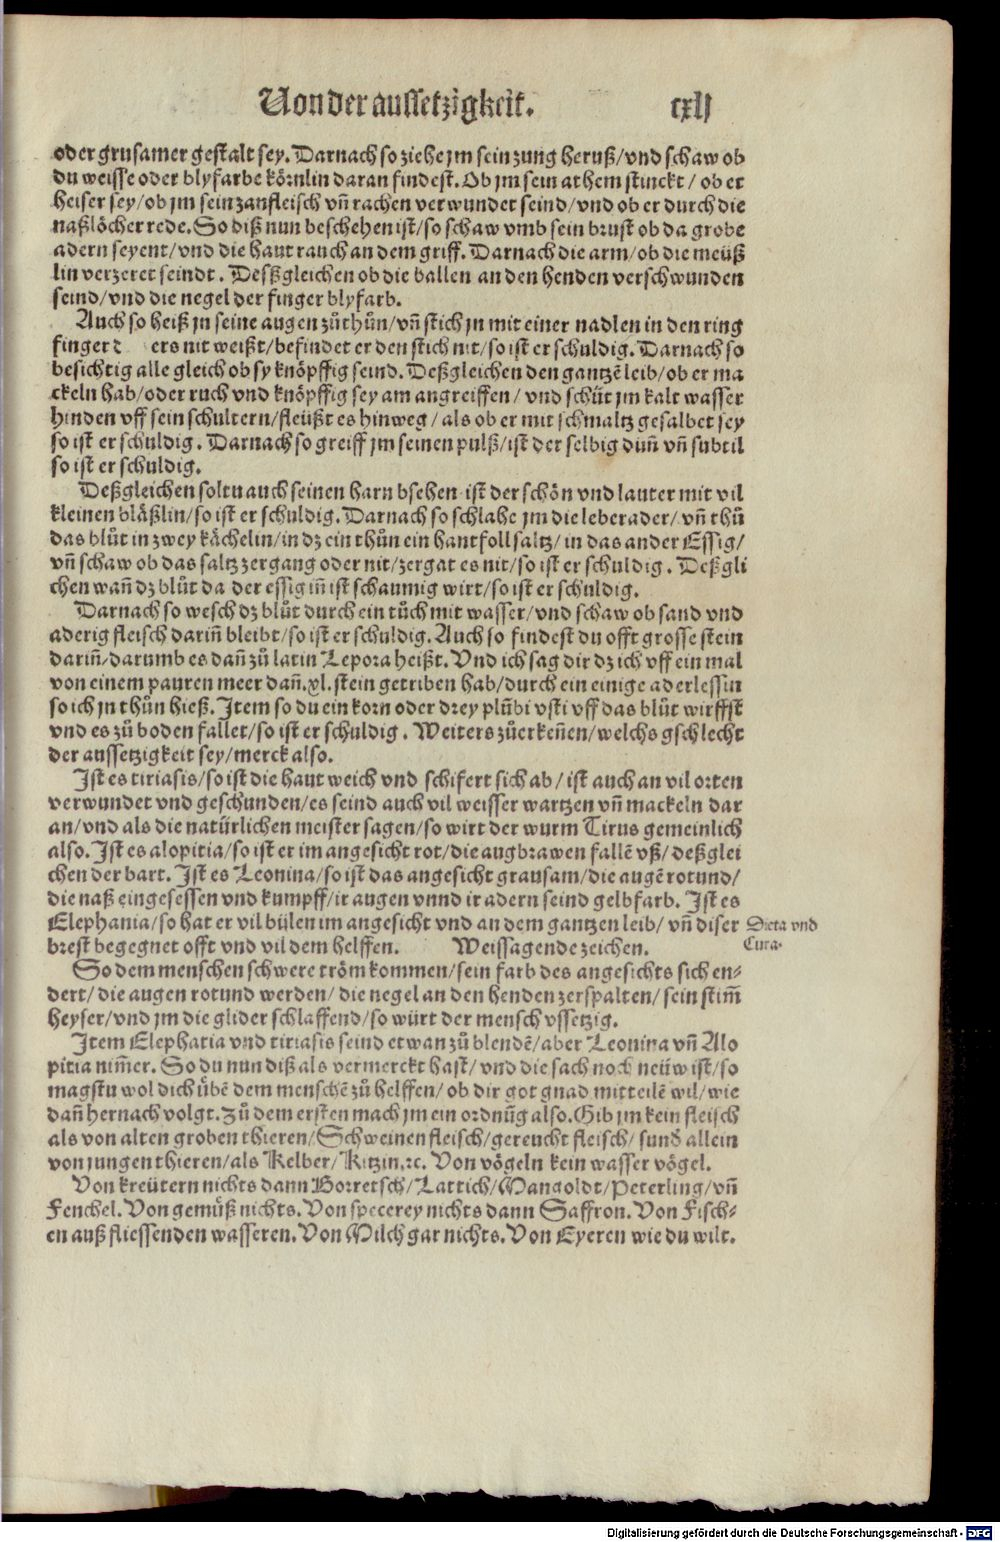 Von der aussetzigkeit. cxlj
oder grusamer gestalt sey. Darnach so ziehe jm sein zung heruß/vnd schaw ob
du weisse oder blyfarbe körnlin daran findest. Ob jm sein athem stinckt / ob er
heiser sey/ob jm sein zanfleisch vñ rachen verwundet seind/vnd ob er durch die
naßlöcher rede. So diß nun beschehen ist/so schaw vmb sein brust ob da grobe
adern seyent/vnd die haut rauch an dem griff. Darnach die arm/ob die meüß
lin verzeret seindt. Deßgleichen ob die ballen an den henden verschwunden
seind/vnd die negel der finger blyfarb.
Auch so heiß jn seine augen zůthůn/vñ stich jn mit einer nadlen in den ring
finger d ers nit weißt/befindet er den stich nit/so ist er schuldig. Darnach so
besichtig alle gleich ob sy knöpffig seind. Deßgleichen den gantzē leib/ob er ma
ckeln hab/oder ruch vnd knöpffig sey am angreiffen/vnd schüt jm kalt wasser
hinden vff sein schultern/fleüßt es hinweg/als ob er mit schmaltz gesalbet sey
so ist er schuldig. Darnach so greiff jm seinen pulß/ist der selbig duñ vñ subtil
so ist er schuldig.
Deßgleichen soltu auch seinen harn bsehen ist der schön vnd lauter mit vil
kleinen bläßlin/so ist er schuldig. Darnach so schlahe jm die leberader/vñ thů
das blůt in zwey kächelin/in dz ein thůn ein hantfoll saltz/in das ander Essig/
vñ schaw ob das saltz zergang oder nit/zergat es nit/so ist er schuldig. Deßgli
chen wañ dz blůt da der essig iñ ist schaumig wirt/so ist er schuldig.
Darnach so wesch dz blůt durch ein tůch mit wasser/vnd schaw ob sand vnd
aderig fleisch dariñ bleibt/so ist er schuldig. Auch so findest du offt grosse stein
dariñ/darumb es dañ zů latin Lepora heißt. Vnd ich sag dir dz ich vff ein mal
von einem pauren meer dañ .xl. stein getriben hab/durch ein einige aderlessin
so ich jn thůn hieß. Item so du ein korn oder drey plūbi vsti vff das blůt wirffst
vnd es zů boden fallet/so ist er schuldig. Weiters zůerkeñen/welchs gschlecht
der aussetzigkeit sey/merck also.
Ist es tiriasis/so ist die haut weich vnd schifert sich ab/ist auch an vil orten
verwundet vnd geschunden/es seind auch vil weisser wartzen vñ mackeln dar
an/vnd als die natürlichen meister sagen/so wirt der wurm Tirus gemeinlich
also. Ist es alopitia/so ist er im angesicht rot/die augbrawen fallē vß/deßglei
chen der bart. Ist es Leonina/so ist das angesicht grausam/die augē rotund/
die naß eingesessen vnd kumpff/ir augen vnnd ir adern seind gelbfarb. Ist es
Elephania/so hat er vil bülen im angesicht vnd an dem gantzen leib/vñ diser
brest begegnet offt vnd vil dem helffen. Weissagende zeichen.
Dieta vnd
Cura.
So dem menschen schwere tröm kommen/sein farb des angesichts sich en-
dert/die augen rotund werden/die negel an den henden zerspalten/sein stim̃
heyser/vnd jm die glider schlaffend/so würt der mensch vssetzig.
Item Elephatia vnd tiriasis seind etwan zů blendē/aber Leonina vñ Alo
pitia nim̃er. So du nun diß als vermerckt hast/vnd die sach noch neüw ist/so
magstu wol dich übē dem menschē zů helffen/ob dir got gnad mitteilē wil/wie
dañ hernach volgt. Zů dem ersten mach jm ein ordnūg also. Gib jm kein fleisch
als von alten groben thieren/Schweinen fleisch/gereucht fleisch/sund allein
von jungen thieren/als Kelber/Kitzin.ꝛc. Von vögeln kein wasser vögel.
Von kreütern nichts dann Borretsch/Lattich/Mangoldt/Peterling/vñ
Fenchel. Von gemüß nichts. Von specerey nichts dann Saffron. Von Fisch-
en auß fliessenden wasseren. Von Milch gar nichts. Von Eyeren wie du wilt.
Digitalisierung gefördert durch die Deutsche Forschungsgemeinschaft - DFG